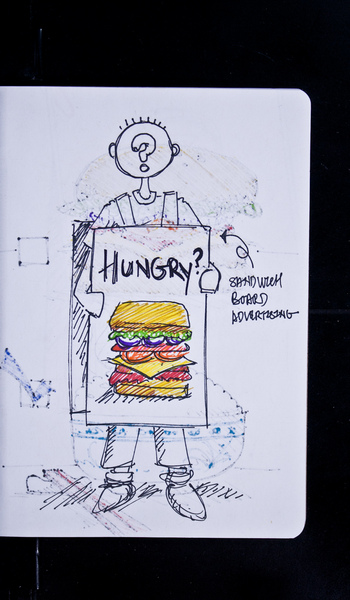 ?
HUNGRY?
SANDWICH
BOARD
ADVERTISING